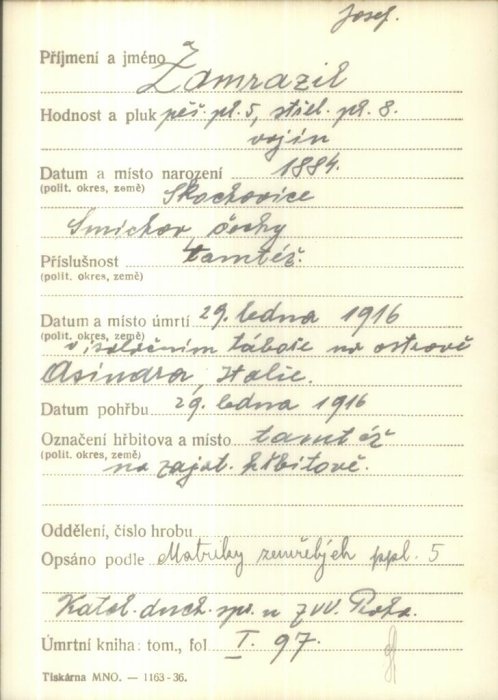 Josef.
Příjmení a jméno Zamrazil
Hodnost a pluk pěš. pl. 5, střel. pl. 8.
vojín
Datum a místo narození 1884.
(polit. okres, země) Skochovice
Smíchov, Čechy
Příslušnost tamtéž.
(polit. okres, země)
Datum a místo úmrtí 29. ledna 1916
(polit. okres, země) v isolačním táboře na ostrově
Asinara, Italie.
Datum pohřbu 29. ledna 1916
Označení hřbitova a místo tamtéž
(polit. okres, země) na zajat. hřbitově.
Oddělení, číslo hrobu
Opsáno podle Matriky zemřelých ppl. 5
Katol. duch. spr. u ZVV. Praha.
Úmrtní kniha: tom., fol I. 97.
Tiskárna MNO. — 1163-36.